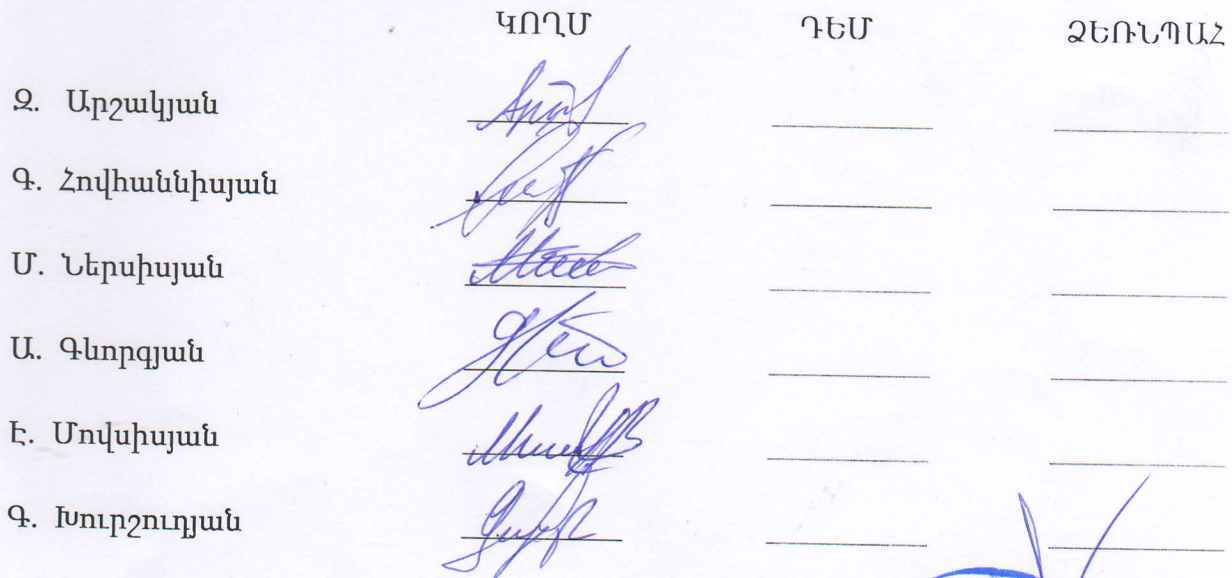 ԿՈՂՄ ԴԵՄ ՁԵՌՆՊԱՀ
Զ. Արշակյան
Գ. Հովհաննիսյան
Մ. Ներսիսյան
Ա. Գևորգյան
Է. Մովսիսյան
Գ. Խուրշուդյան